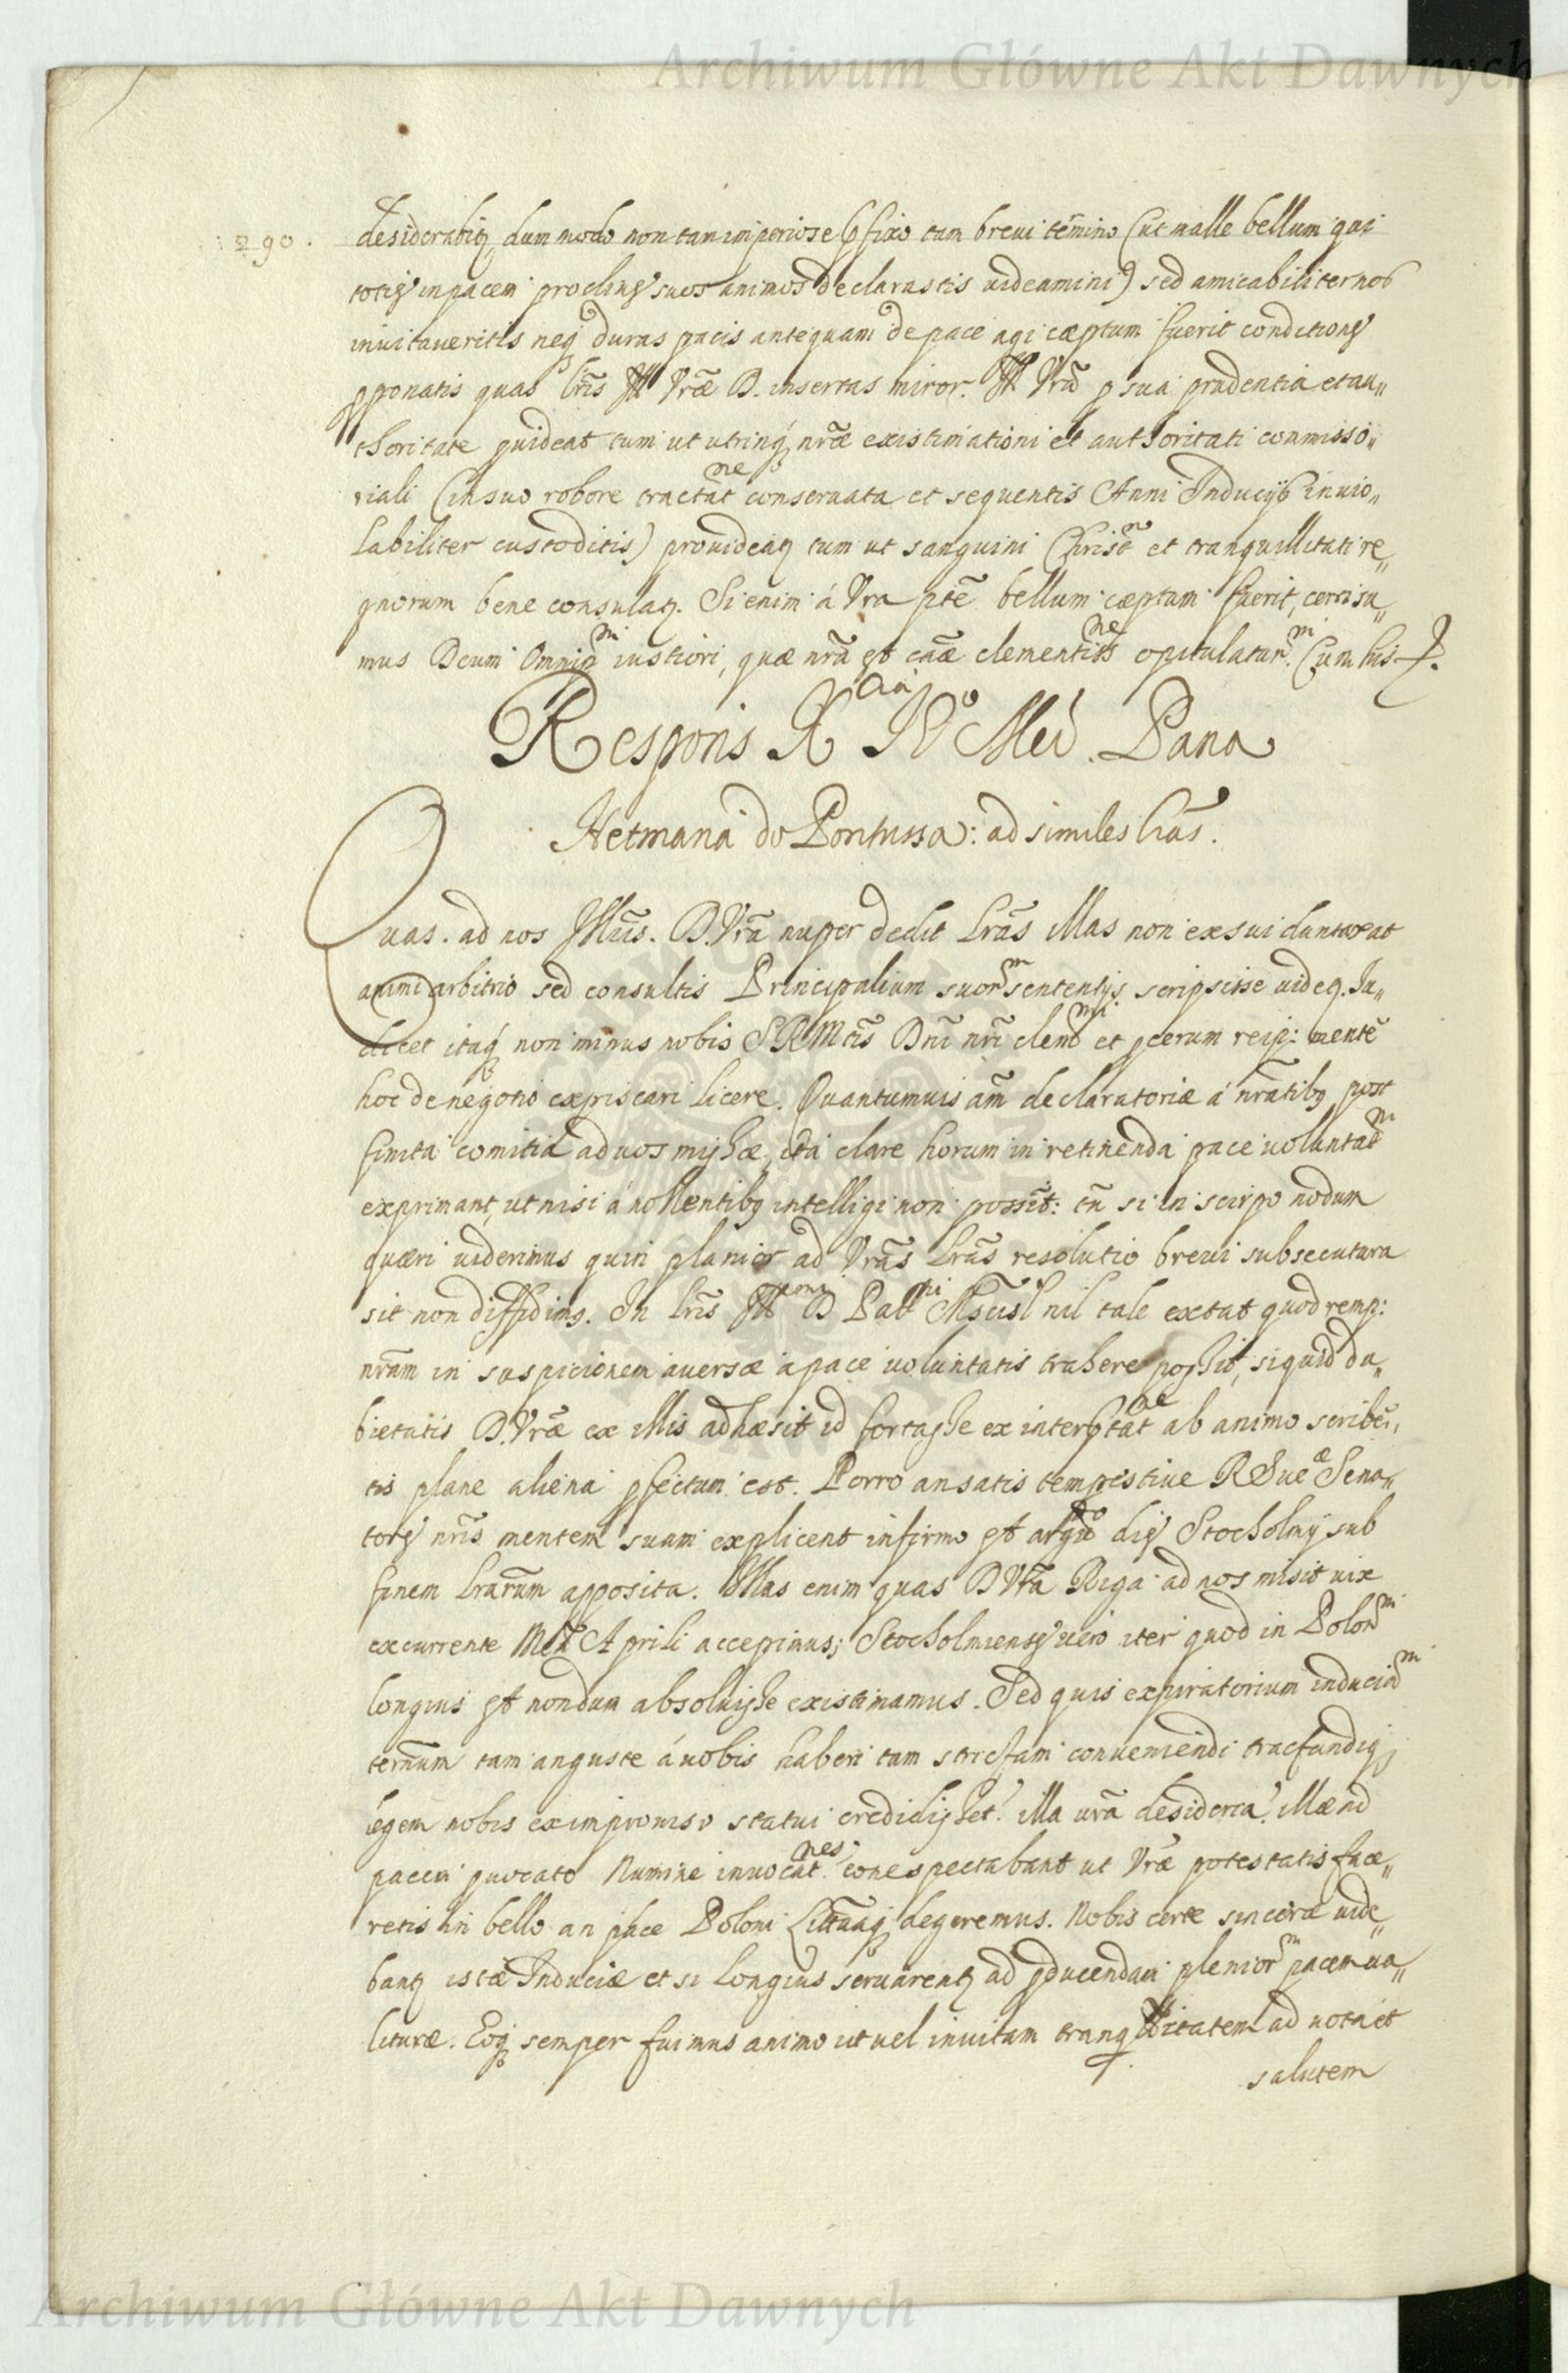 Archiwum Główne Akt Dawnych
290.
desiderabitq dum modo non tam imperiose p̱fixo tam breui tẽmino (ut malle bellum qui
toties in pacem proclines suos animos declarastis uideamini) sed amicabiliter nos
inuitaueritis neq̃ duras pacis antequam de pace agi cæptum fuerit conditiones
p̱ponatis quas lrĩs Ill Vræ̃ D. insertas miror. Ill Vrã p sua prudentia et au„
thoritate p̱uideat tum ut utrinq̃ nræ̃ existimationi et authoritati commisso„
riali (in suo robore tractatne conseruata et sequentis Anni Inducijs inuio„
labiliter custoditis) prouideatq tum ut sanguini Christno et tranquillitati re„
gnorum bene consulatq. Si enim á Vra ptẽ bellum cæptum fuerit, certi su„
mus Deum Omnipm iustiori, quæ nrã est cãæ clementissne opitulaturm. Cum his
Respons X JMci Wo Mci Pana
Hetmana do Pontussa: ad similes lrãs.
Quas ad nos Illmãs. D. Vrã nuper dedit Lrãs illas non ex sui duntaxat
animi arbitrio sed consultis Principalium suorm sententijs scripsisse uideq. Iu„
dicet itaq̃ non minus nobis SRMtis Dnĩ nrĩ clemmi et p̱cerum reip: mentẽ
hoc de negotio expiscari licere. Quantumuis am̃ declaratoriæ á nrãtibq post
finita comitia ad uos missæ, ita clare horum in retinenda pace uoluntatm
exprimant, ut nisi á nolentibq intelligi non possẽt: tñ si in scirpo nodum
quæri uiderimus quin planior ad Vrãs Lrãs resolutio breui subsecutura
sit non diffidimq. In lrĩs Ill D Palni Mscisl nil tale extat quod remp:
nrãm in suspicionem auersæ á pace uoluntatis trahere possit, siquid du„
bietatis D. Vræ̃ ex illis adhæsit id fortasse ex interp̱tatne ab animo scribẽ„
tis plane aliena p̱fectum est. Porro an satis tempestiue R Sueæ Sena„
tores nrĩs mentem suam explicent infirmo est argto dies Stocholmij sub
finem Lrarũm apposita. Illas enim quas D Vrã Riga ad nos misit uix
excurrente Mẽn Aprili accepimus; Stocholmienses uero iter quod in Polonm
longius est nondum absoluisse existimamus. Sed quis expiratorium induciarm
termñum tam anguste á uobis haberi tam strictam conueniendi tractandiq̃
legem nobis ex improuiso statui credidisset? illa urã desideria? illæ ad
pacem p̱uocato Numine inuocatnes eone spectabant ut Vræ̃ potestatis face„
retis in bello an pace Poloni Littuaniq̃ degeremus. Nobis certe sincere uide„
bantq istæ Induciæ et si longius seruarentq ad p̱ducendam pleniorm pacem ua„
lituræ. Eoq̃ semper fuimus animo ut uel inuitam tranquillitatem ad uota et
salutem
Archiwum Główne Akt Dawnych